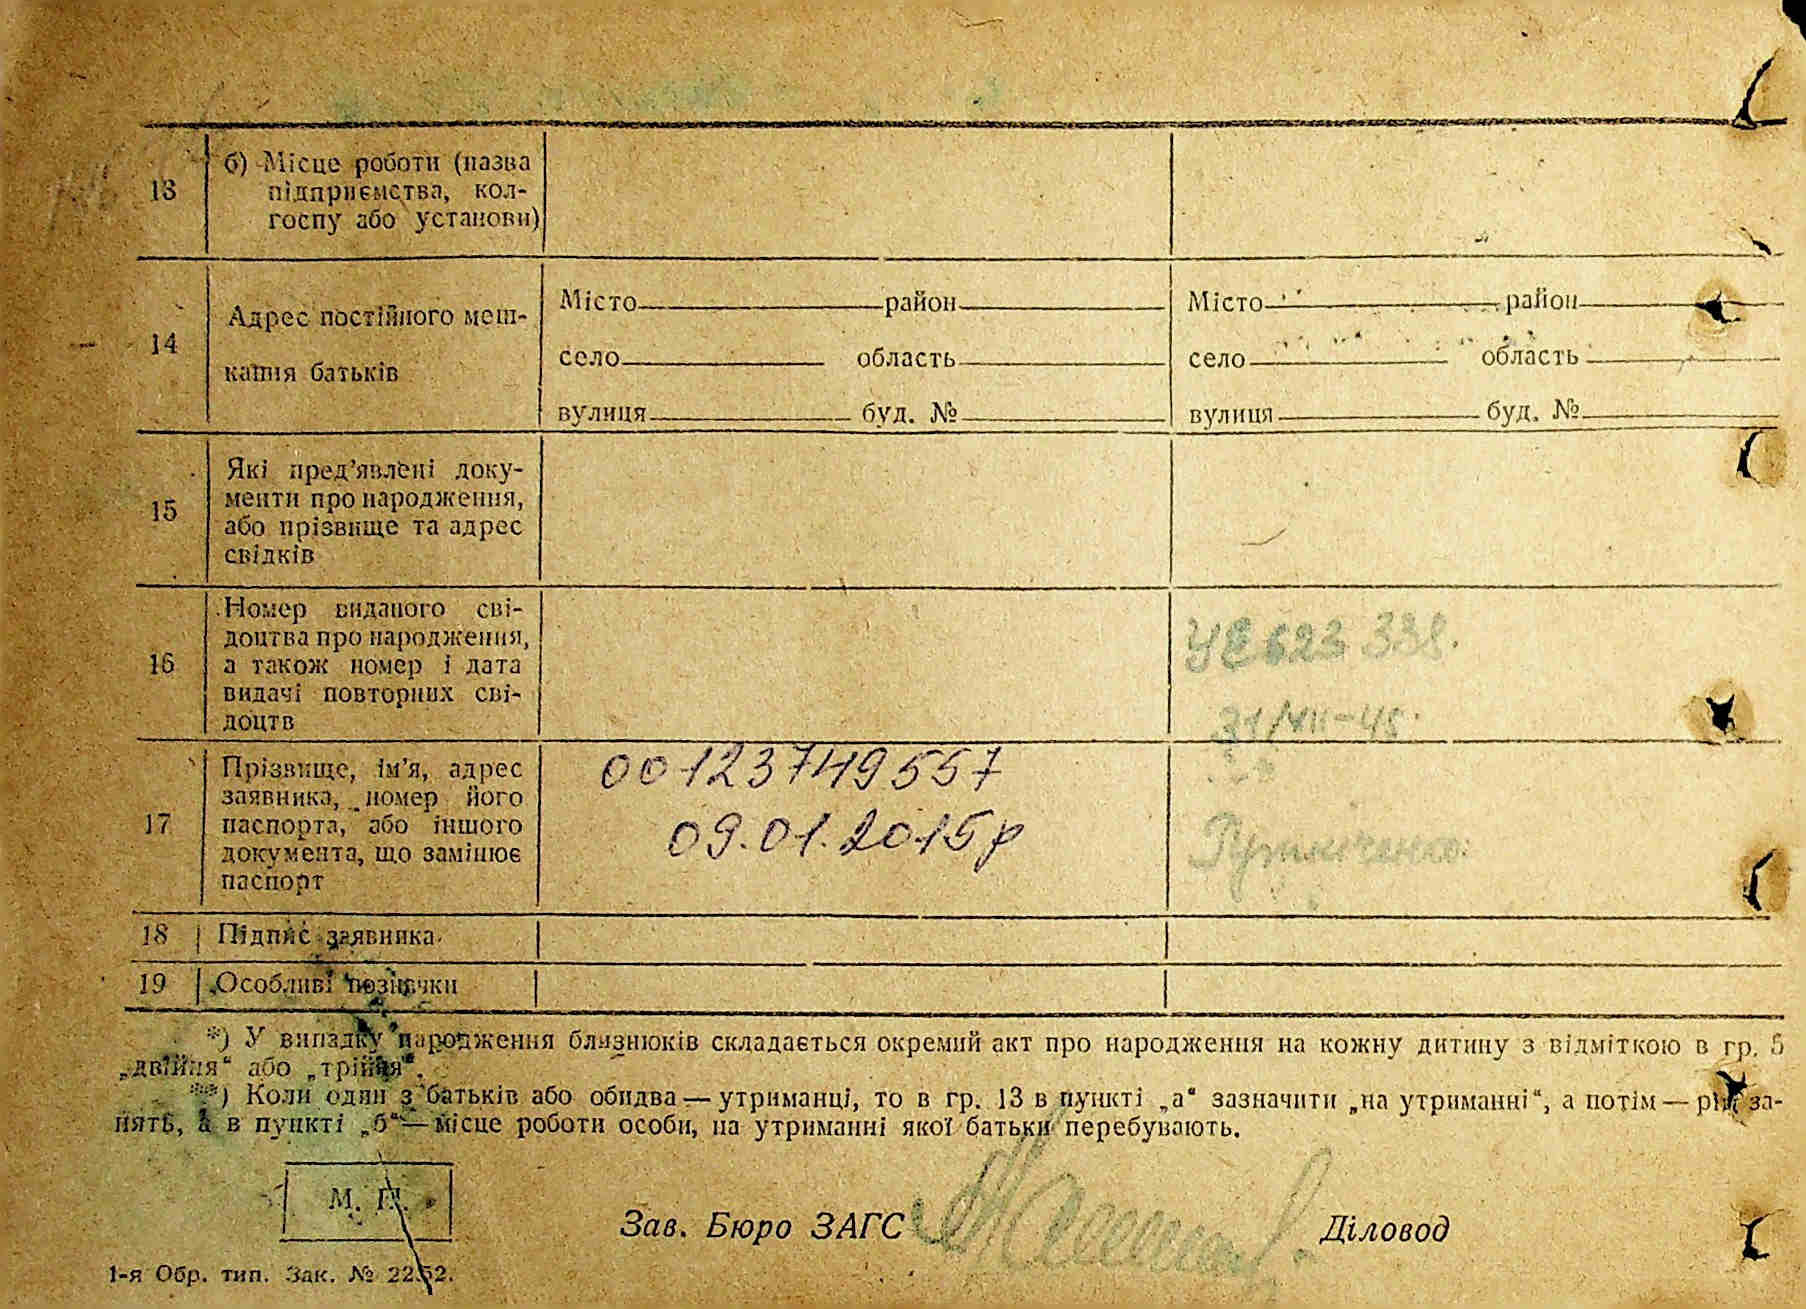 13
б) Місце роботи (назва
підприємства, кол-
госпу або установи)
14
Адрес постійного меш-
кання батьків
Місто район
село область
вулиця буд. №
Місто район
село область
вулиця буд. №
15
Які пред’явлені доку-
менти про народження,
або прізвище та адрес
свідків
16
Номер виданого сві-
доцтва про народження,
а також номер і дата
видачі повторних сві-
доцтв
УЕ 623 338.
31/VII-45.
17
Прізвище, ім’я, адрес
заявника, номер його
паспорта, або іншого
документа, що замінює
паспорт
00123749557
09.01.2015р
18 Підпис заявника
19 Особливі позначки
*) У випадку народження близнюків складається окремий акт про народження на кожну дитину з відміткою в гр. 5
„двійня“ або „трійня“.
**) Коли один з батьків або обидва — утриманці, то в гр. 13 в пункті „а“ зазначити „на утриманні“, а потім — рід за-
нять, а в пункті „б“ — місце роботи особи, на утриманні якої батьки перебувають.
М. П.
Зав. Бюро ЗАГС Діловод
1-я Обр. тип. Зак. № 2252.